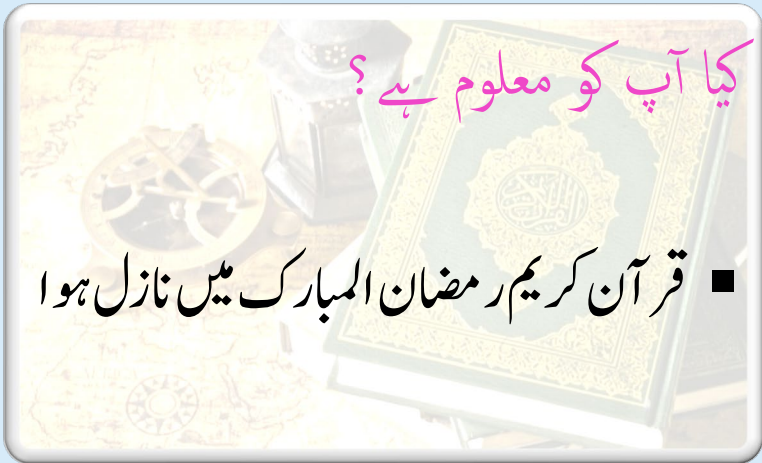 کیا آپ کو معلوم ہے؟
▪ قرآن کریم رمضان المبارک میں نازل ہوا